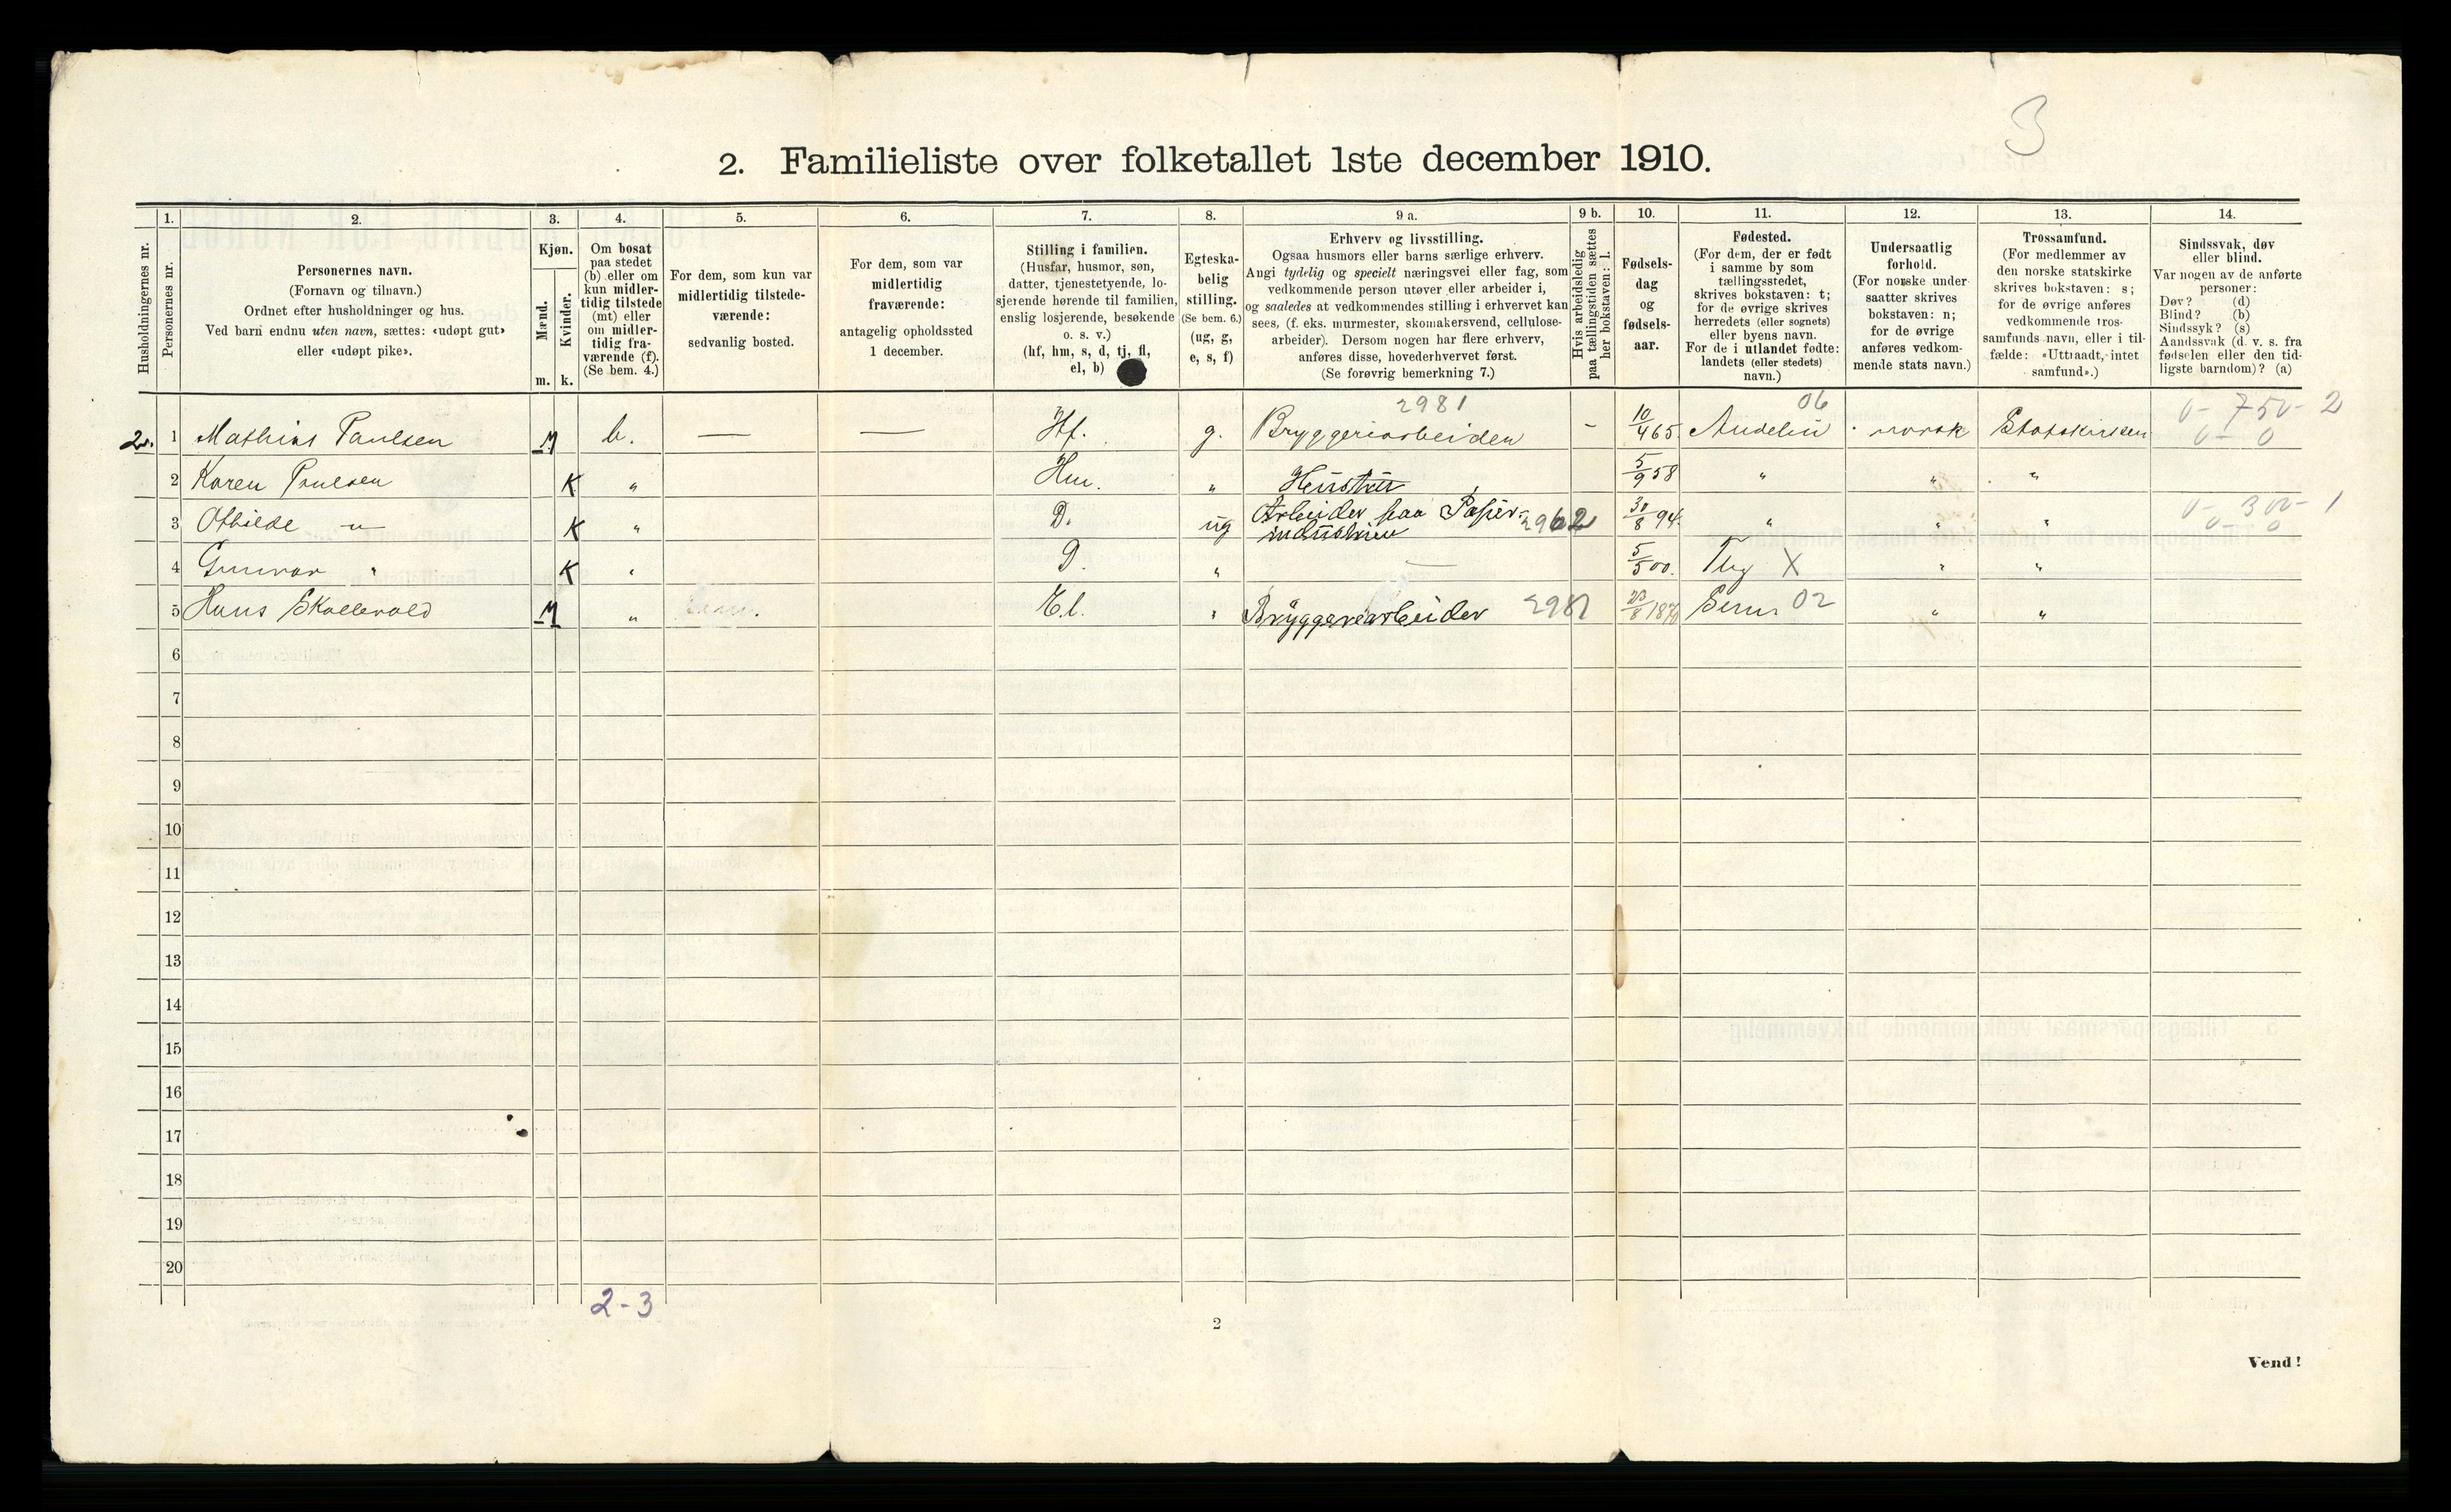 3
2. Familieliste over folketallet 1ste december 1910.
Husholdningernes nr.
1. Personernes nr.
2. Personernes navn. (Fornavn og tilnavn.) Ordnet efter husholdninger og hus. Ved barn endnu uten navn, sættes: «udøpt gut» eller «udøpt pike».
3. Kjøn. Mænd. m. Kvinder. k.
4. Om bosat paa stedet (b) eller om kun midlertidig tilstede (mt) eller om midlertidig fraværende (f). (Se bem. 4.)
5. For dem, som kun var midlertidig tilstedeværende: sedvanlig bosted.
6. For dem, som var midlertidig fraværende: antagelig opholdssted 1 december.
7. Stilling i familien. (Husfar, husmor, søn, datter, tjenestetyende, losjerende hørende til familien, enslig losjerende, besøkende o. s. v.) (hf, hm, s, d, tj, fl, el, b)
8. Egteskabelig stilling. (Se bem. 6.) (ug, g, e, s, f)
9 a. Erhverv og livsstilling. Ogsaa husmors eller barns særlige erhverv. Angi tydelig og specielt næringsvei eller fag, som vedkommende person utøver eller arbeider i, og saaledes at vedkommendes stilling i erhvervet kan sees, (f. eks. murmester, skomakersvend, cellulosearbeider). Dersom nogen har flere erhverv, anføres disse, hovederhvervet først. (Se forøvrig bemerkning 7.)
9 b. Hvis arbeidsledig paa tællingstiden sættes her bokstaven: l.
10. Fødselsdag og fødselsaar.
11. Fødested. (For dem, der er født i samme by som tællingsstedet, skrives bokstaven: t; for de øvrige skrives herredets (eller sognets) eller byens navn. For de i utlandet fødte: landets (eller stedets) navn.)
12. Undersaatlig forhold. (For norske undersaatter skrives bokstaven: n; for de øvrige anføres vedkommende stats navn.)
13. Trossamfund. (For medlemmer av den norske statskirke skrives bokstaven: s; for de øvrige anføres vedkommende trossamfunds navn, eller i tilfælde: «Uttraadt, intet samfund».)
14. Sindssvak, døv eller blind. Var nogen av de anførte personer: Døv? (d) Blind? (b) Sindssyk? (s) Aandssvak (d. v. s. fra fødselen eller den tidligste barndom)? (a)
2981 06 0- 750- 2
2. 1 Mathias Paulsen M b. — — Hf. g. Bryggeriarbeider - 10/4 65 norsk Statskirken 0- 0
2 Karen Paulsen K " Hm. " Hustru 5/9 58 " " "
3 Othilde " K " D. ug Arbeider paa Papirindustrien 2962 30/8 94. " " " 0- 300- 1 0- 0
4 Gunvor " K " D. " — 5/5 00. Tbg X " "
5 Hans Skallevold M " El. " Bryggeriarbeider 2981 Sem 02 " "
6
7
8
9
10
11
12
13
14
15
16
17
18
19
20
2-3
2
Vend!